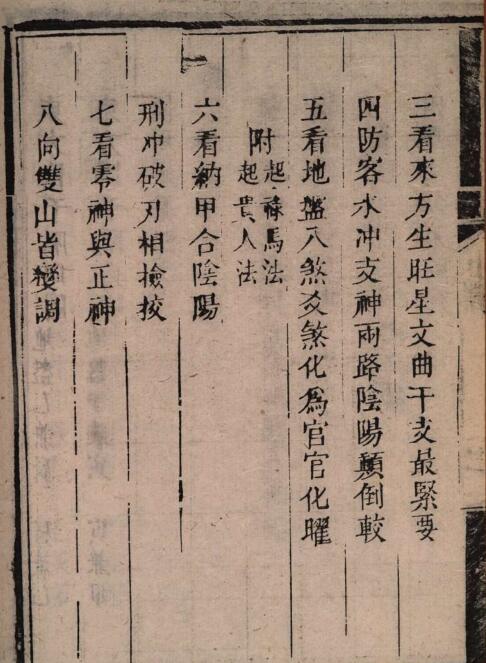 三看來方生旺星文曲干支最緊要
四防客水冲支神兩路陰陽顛倒較
五看地盤八煞爻煞化為官官化曜
附起祿馬法
起貴人法
六看納甲合陰陽
刑冲破刃相撿挍
七看零神與正神
八向雙山皆變調